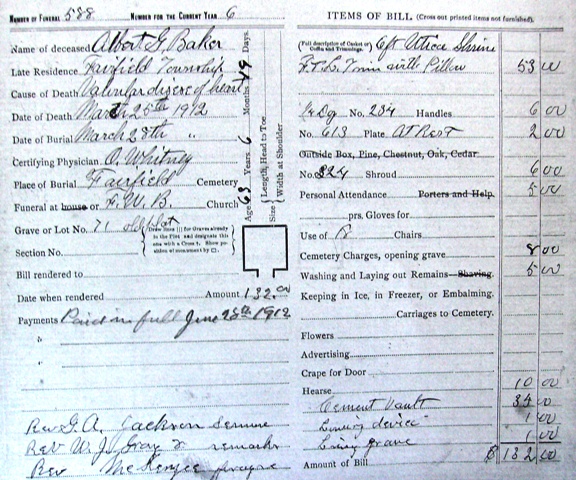 NUMBER OF FUNERAL 588 NUMBER FOR THE CURRENT YEAR 6
Name of deceased Albert G. Baker
Late Residence Fairfield Township
Cause of Death Valvular disease of heart
Date of Death March 25th 1912
Date of Burial March 28th "
Certifying Physician O. Whitney
Place of Burial Fairfield Cemetery
Funeral at house or F. W. B. Church
Age 63 Years 6 Months 19 Days.
Size { Length, Head to Toe.
Width at Shoulder
Grave or Lot No. 71 old lot
Section No.
Bill rendered to
Date when rendered Amount 132.00
Payments Paid in full June 28th 1912
"
"
Rev G. A. Jackson sermon
Rev W. J. Gray remarks
Rev McKenzie prayer
ITEMS OF BILL (Cross out printed items not furnished).
(Full description of Casket or Coffin and Trimmings.) 6ft Utica Shrine
Pillow 53 00
1/2 Dg No. 234 Handles 6 00
No. 613 Plate At Rest 2 00
Outside Box, Pine, Chestnut, Oak, Cedar
No. 324 Shroud 6 00
Personal Attendance Porters and Help. 5 00
prs. Gloves for
Use of Chairs
Cemetery Charges, opening grave 8 00
Washing and Laying out Remains—Shaving. 5 00
Keeping in Ice, in Freezer, or Embalming.
Carriages to Cemetery.
Flowers
Advertising
Crape for Door
Hearse 10 00
Cement Vault 35 00
device 1 00
Lining grave 1 00
Amount of Bill $ 132 00